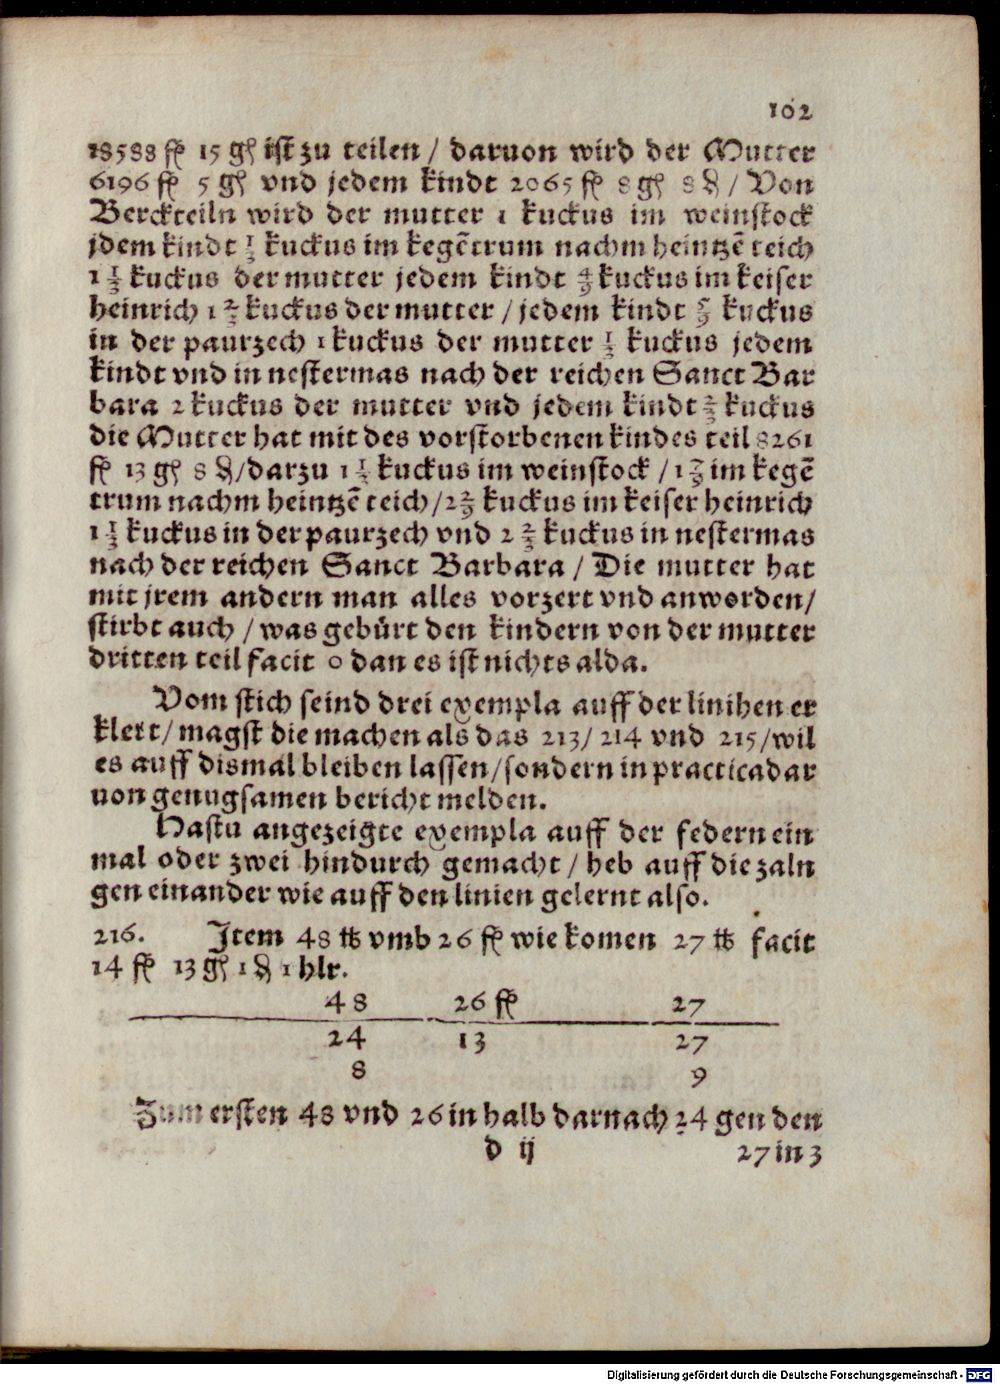 102
18588 fl 15 gꝭ ist zu teilen / daruon wird der Mutter
6196 fl 5 gꝭ vnd jedem kindt 2065 fl 8 gꝭ 8 ₰ / Von
Berckteiln wird der mutter 1 kuckus im weinstock
jdem kindt 1/3 kuckus im kegẽtrum nachm heintzẽ teich
1 1/3 kuckus der mutter jedem kindt 4/9 kuckus im keiser
heinrich 1 2/3 kuckus der mutter / jedem kindt 5/9 kuckus
in der paurzech 1 kuckus der mutter 1/3 kuckus jedem
kindt vnd in nestermas nach der reichen Sanct Bar
bara 2 kuckus der mutter vnd jedem kindt 2/3 kuckus
die Mutter hat mit des vorstorbenen kindes teil 8261
fl 13 gꝭ 8 ₰/darzu 1 1/3 kuckus im weinstock / 1 7/9 im kegẽ
trum nachm heintzẽ teich/2 2/9 kuckus im keiser heinrich
1 1/3 kuckus in der paurzech vnd 2 2/3 kuckus in nestermas
nach der reichen Sanct Barbara / Die mutter hat
mit jrem andern man alles vorzert vnd anworden/
stirbt auch / was gebürt den kindern von der mutter
dritten teil facit 0 dan es ist nichts alda.
Vom stich seind drei exempla auff der linihen er
klert/ magst die machen als das 213/ 214 vnd 215/wil
es auff dismal bleiben lassen/sondern in practica dar
uon genugsamen bericht melden.
Hastu angezeigte exempla auff der federn ein
mal oder zwei hindurch gemacht / heb auff die zaln
gen einander wie auff den linien gelernt also.
216. Item 48 ℔ vmb 26 fl wie komen 27 ℔ facit
14 fl 13 gꝭ 1 ₰ 1 hlr.
48 26 fl 27
24 13 27
8 9
Zum ersten 48 vnd 26 in halb darnach 24 gen den
d ij 27 in 3
Digitalisierung gefördert durch die Deutsche Forschungsgemeinschaft - DFG